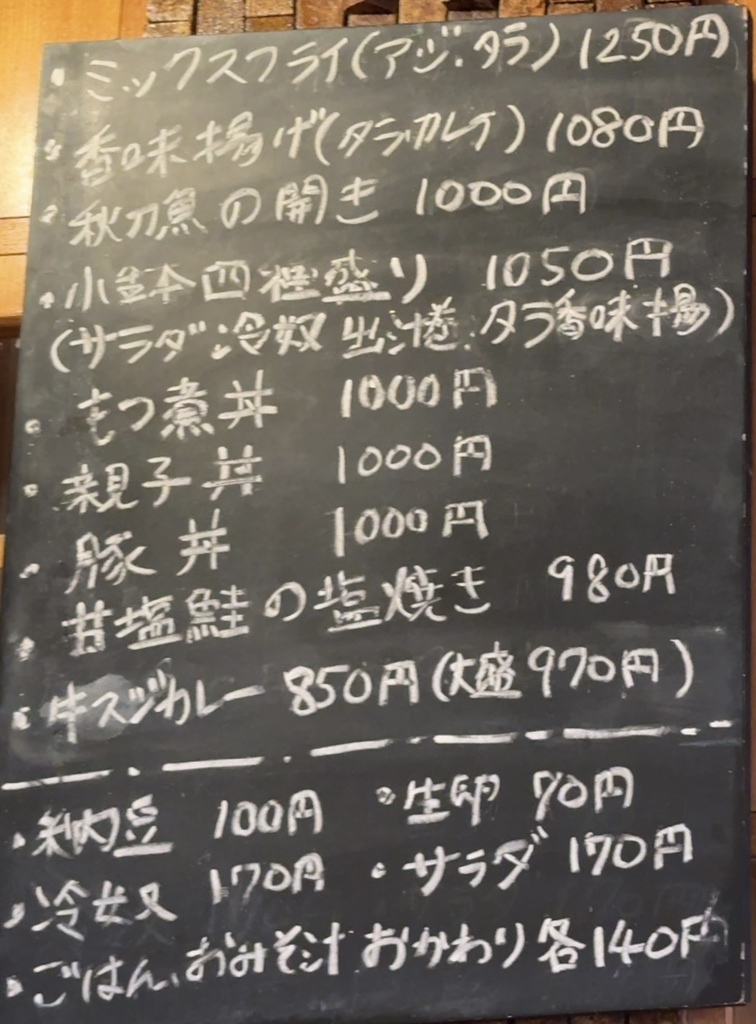 ・ミックスフライ(アジ、タラ) 1250円
・香味揚げ(タラ、カレイ) 1080円
・秋刀魚の開き 1000円
・小鉢四種盛り 1050円
(サラダ 冷奴 出汁巻、タラ香味揚)
・もつ煮丼 1000円
・親子丼 1000円
・豚丼 1000円
・甘塩鮭の塩焼き 980円
・牛スジカレー 850円(大盛970円)
・納豆 100円 ・生卵 70円
・冷奴 170円 ・サラダ 170円
・ごはん、おみそ汁 おかわり各140円